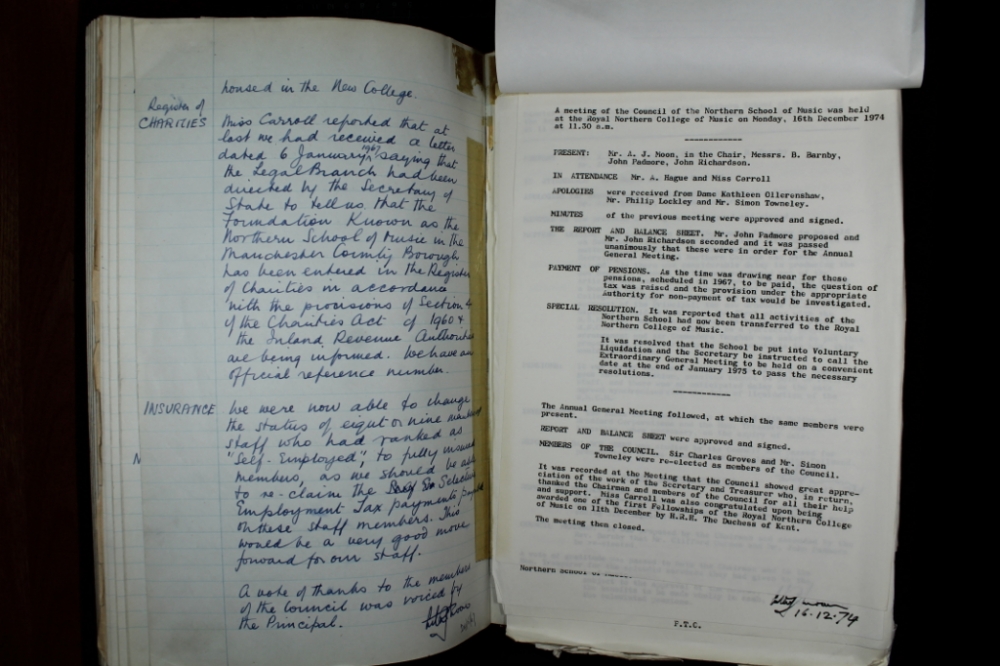 housed in the New College.
Register of
CHARITIES
Miss Carroll reported that at
last we had received a letter
dated 6 January 1967 saying that
the Legal Branch had been
directed by the Secretary of
State to tell us that the
Foundation Known as the
Northern School of Music in the
Manchester County Borough
has been entered in the Register
of Charities in accordance
with the provisions of Section 4
of the Charities Act of 1960 &
the Inland Revenue Authorities
are being informed. We have an
official reference number.
INSURANCE
We were now able to change
the status of eight or nine members of
staff who had ranked as
"Self-Employed", to fully insured
members, as we should be able
to re-claim the Selective
Employment Tax payments
on these staff members. This
would be a very good move
forward for our staff.
A vote of thanks to the members
of the Council was voiced by
the Principal.
A meeting of the Council of the Northern School of Music was held
at the Royal Northern College of Music on Monday, 16th December 1974
at 11.30 a.m.
PRESENT: Mr. A. J. Moon, in the Chair, Messrs. B. Barnby,
John Padmore, John Richardson.
IN ATTENDANCE Mr. A. Hague and Miss Carroll
APOLOGIES were received from Dame Kathleen Ollerenshaw,
Mr. Philip Lockley and Mr. Simon Towneley.
MINUTES of the previous meeting were approved and signed.
THE REPORT AND BALANCE SHEET. Mr. John Padmore proposed and
Mr. John Richardson seconded and it was passed
unanimously that these were in order for the Annual
General Meeting.
PAYMENT OF PENSIONS. As the time was drawing near for those
pensions, scheduled in 1967, to be paid, the question of
tax was raised and the provision under the appropriate
Authority for non-payment of tax would be investigated.
SPECIAL RESOLUTION. It was reported that all activities of the
Northern School had now been transferred to the Royal
Northern College of Music.
It was resolved that the School be put into Voluntary
Liquidation and the Secretary be instructed to call the
Extraordinary General Meeting to be held on a convenient
date at the end of January 1975 to pass the necessary
resolutions.
The Annual General Meeting followed, at which the same members were
present.
REPORT AND BALANCE SHEET were approved and signed.
MEMBERS OF THE COUNCIL. Sir Charles Groves and Mr. Simon
Towneley were re-elected as members of the Council.
It was recorded at the Meeting that the Council showed great appre-
ciation of the work of the Secretary and Treasurer who, in return,
thanked the Chairman and members of the Council for all their help
and support. Miss Carroll was also congratulated upon being
awarded one of the first Fellowships of the Royal Northern College
of Music on 11th December by H.R.H. The Duchess of Kent.
The meeting then closed.
Northern School of
16.12.74
P.T.O.